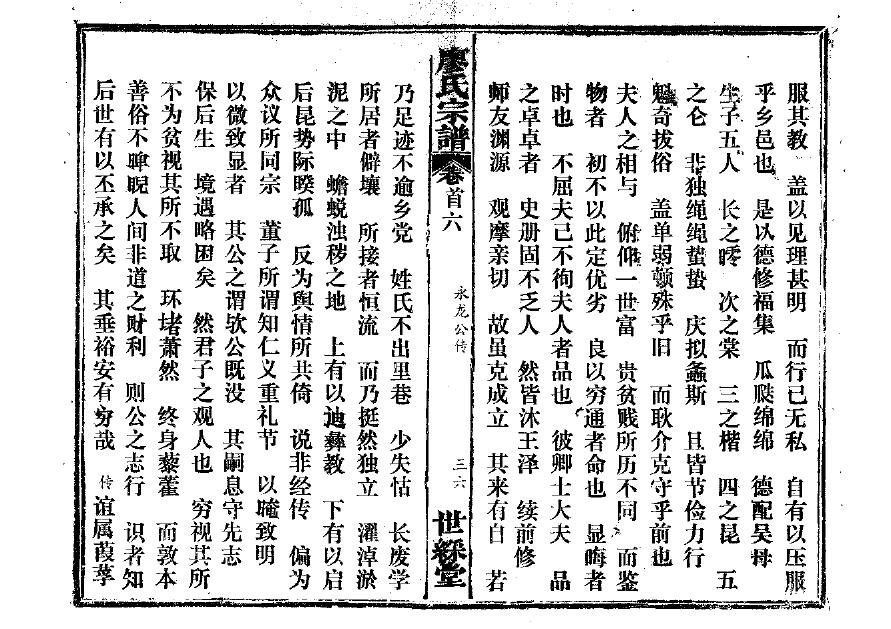 服其教　盖以见理甚明　而行己无私　自有以压服
乎乡邑也　是以德修福集　瓜瓞绵绵　德配吴母
生子五人　长之崚　次之棠　三之楷　四之昆　五
之仑　非独绳绳蛰蛰　庆拟螽斯　且皆节俭力行
魁奇拔俗　盖单弱顿殊乎旧　而耿介克守乎前也
夫人之相与　俯仰一世富　贵贫贱所历不同　而鉴
物者　初不以此定优劣　良以穷通者命也　显晦者
时也　不屈夫己不徇夫人者品也　彼卿士大夫　品
之卓卓者　史册固不乏人　然皆沐王泽　续前修
师友渊源　观摩亲切　故虽克成立　其来有自　若
廖氏宗谱
卷首六
永龙公传
三六
世綵堂
乃足迹不逾乡党　姓氏不出里巷　少失怙　长废学
所居者僻壤　所接者恒流　而乃挺然独立　濯淖淤
泥之中　蟾蜕浊秽之地　上有以迪彝教　下有以启
后昆势际暌孤　反为舆情所共倚　说非经传　偏为
众议所同宗　董子所谓知仁义重礼节　以晻致明
以微致显者　其公之谓欤公既没　其嗣息守先志
保后生　境遇略困矣　然君子之观人也　穷视其所
不为贫视其所不取　环堵萧然　终身藜藿　而敦本
善俗不睥睨人间非道之财利　则公之志行　识者知
后世有以丕承之矣　其垂裕安有穷哉　传　谊属葭莩